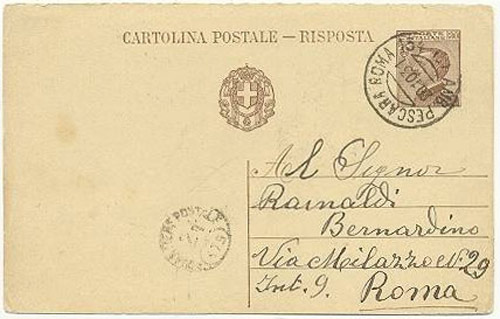 CARTOLINA POSTALE — RISPOSTA
AMB. PESCARA ROMA
Al Signor
Rainaldi
Bernardino
Via Milazzo N. 29
Int. 9. Roma